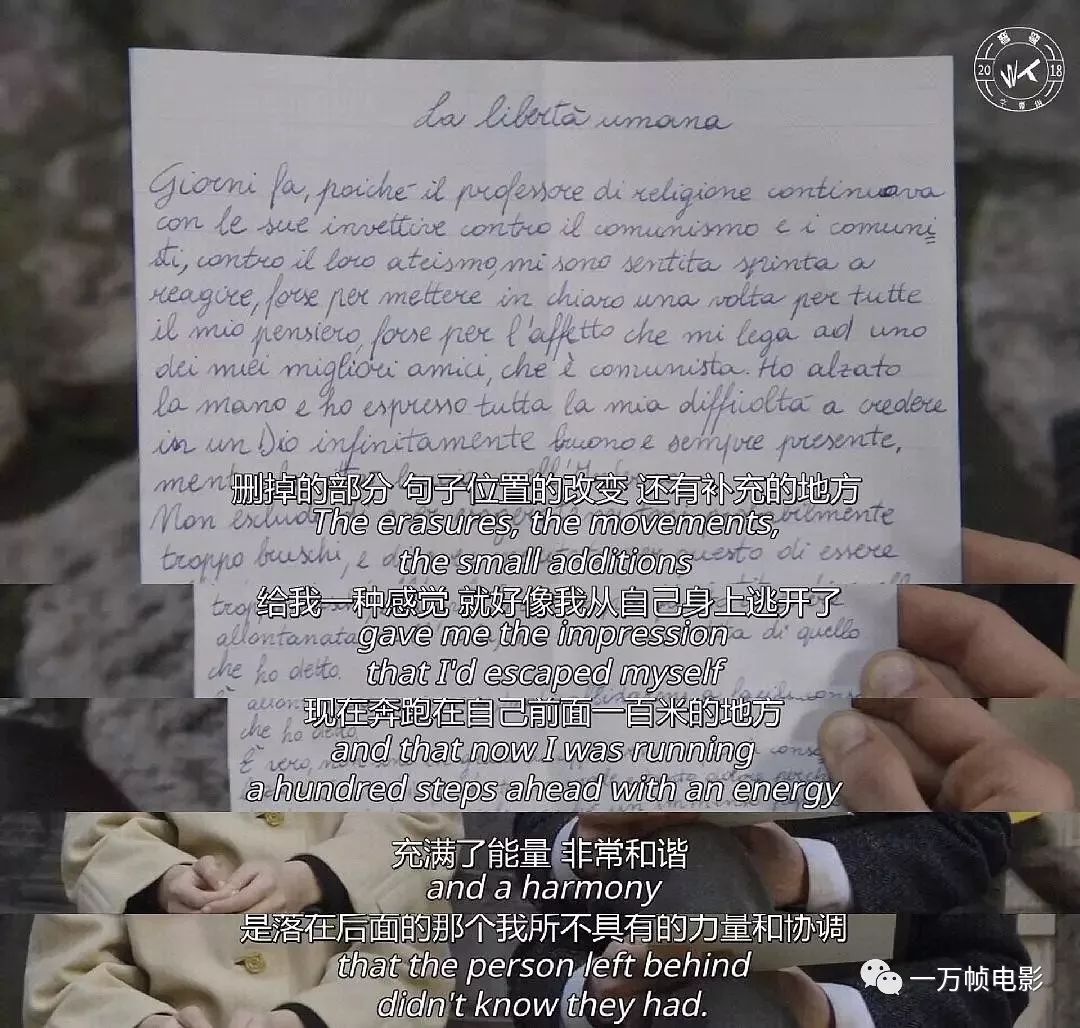 20 18
La libertà umana
Giorni fa, poiché il professore di religione continuava
con le sue invettive contro il comunismo e i comuni
sti, contro il loro ateismo, mi sono sentita spinta a
reagire, forse per mettere in chiaro una volta per tutte
il mio pensiero, forse per l'affetto che mi lega ad uno
dei miei migliori amici, che è comunista. Ho alzato
la mano e ho espresso tutta la mia difficoltà a credere
in un Dio infinitamente buono e sempre presente,
删掉的部分 句子位置的改变 还有补充的地方
The erasures, the movements,
troppo bruschi, e questo di essere
the small additions
给我一种感觉 就好像我从自己身上逃开了
gave me the impression
allontanata di quello
che ho detto.
that I'd escaped myself
现在奔跑在自己前面一百米的地方
che ho detto.
and that now I was running
È vero,
a hundred steps ahead with an energy
充满了能量 非常和谐
and a harmony
是落在后面的那个我所不具有的力量和协调
that the person left behind
didn't know they had.
一万帧电影